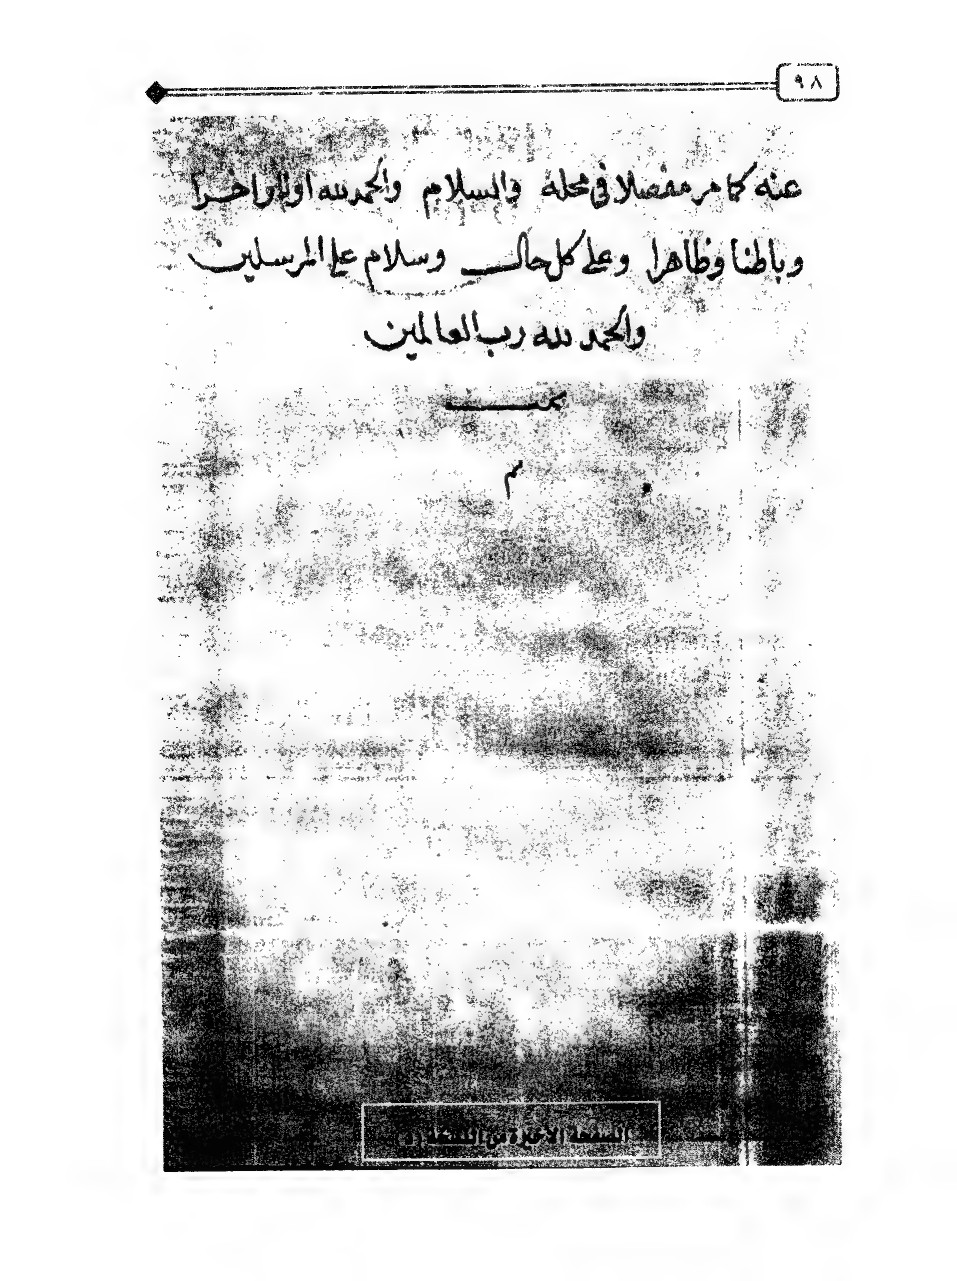 ٩٨
عنه كما مر مفصلا في محله والسلام والحمد لله اولا واخرا
وباطنا وظاهرا وعلى كل حال وسلام على المرسلين
والحمد لله رب العالمين
تمت
م
الصفحة الأخيرة من النسخة